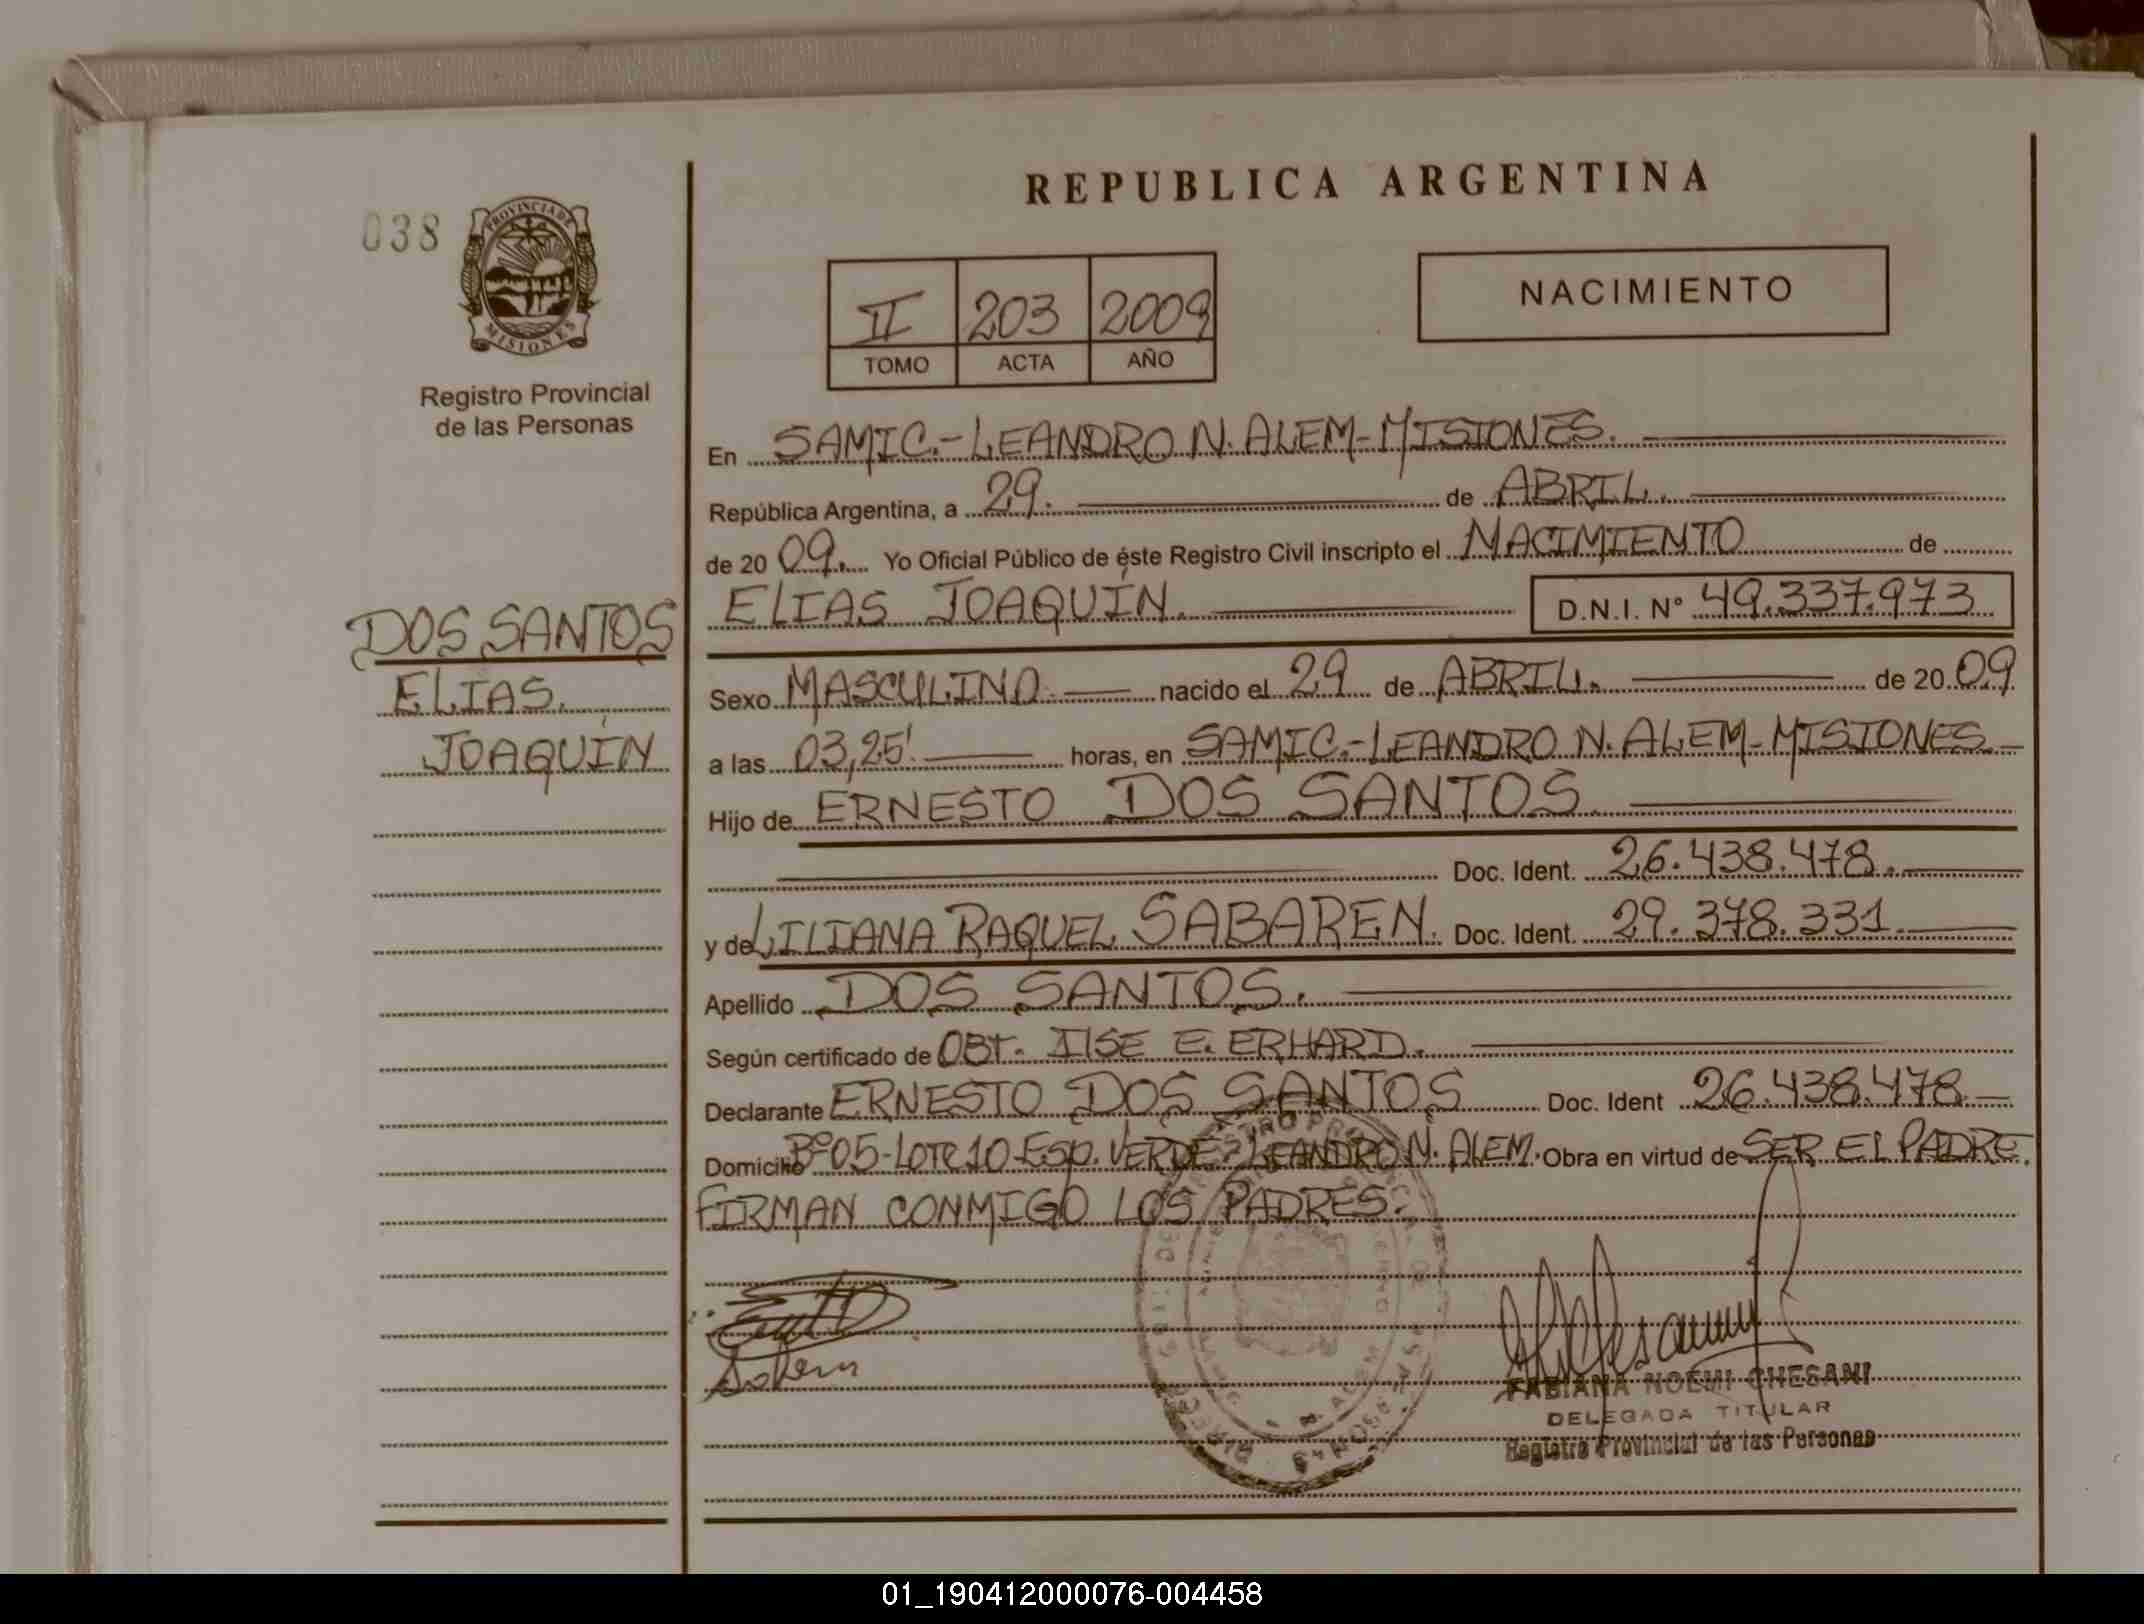 REPUBLICA ARGENTINA
038
PROVINCIA DE
MISIONES
Registro Provincial
de las Personas
II 203 2009
TOMO ACTA AÑO
NACIMIENTO
En SAMIC.-LEANDRO N. ALEM-MISIONES.
República Argentina, a 29. de ABRIL.
de 20 09. Yo Oficial Público de éste Registro Civil inscripto el NACIMIENTO de
ELIAS JOAQUÍN. D.N.I. N° 49.337.973
DOS SANTOS
ELIAS.
JOAQUÍN
Sexo MASCULINO. nacido el 29 de ABRIL. de 20 09
a las 03,25' horas, en SAMIC.-LEANDRO N. ALEM-MISIONES
Hijo de ERNESTO DOS SANTOS.
Doc. Ident. 26.438.478.
y de LILIANA RAQUEL SABAREN. Doc. Ident. 29.378.331.
Apellido DOS SANTOS.
Según certificado de OBT. ILSE E. ERHARD.
Declarante ERNESTO DOS SANTOS Doc. Ident 26.438.478
Domicilio B°05-LOTE 10-ESP. VERDE-LEANDRO N. ALEM. Obra en virtud de SER EL PADRE.
FIRMAN CONMIGO LOS PADRES.
FABIANA NOEMI CHESANI
DELEGADA TITULAR
Registro Provincial de las Personas
01_190412000076-004458